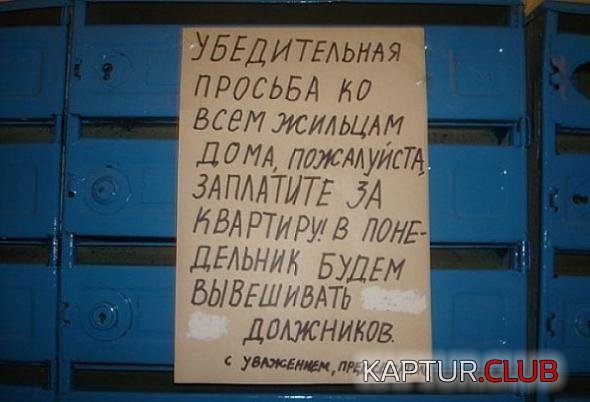 УБЕДИТЕЛЬНАЯ
ПРОСЬБА КО
ВСЕМ ЖИЛЬЦАМ
ДОМА, ПОЖАЛУЙСТА,
ЗАПЛАТИТЕ ЗА
КВАРТИРУ! В ПОНЕ-
ДЕЛЬНИК БУДЕМ
ВЫВЕШИВАТЬ
ДОЛЖНИКОВ.
С УВАЖЕНИЕМ,
KAPTUR.CLUB